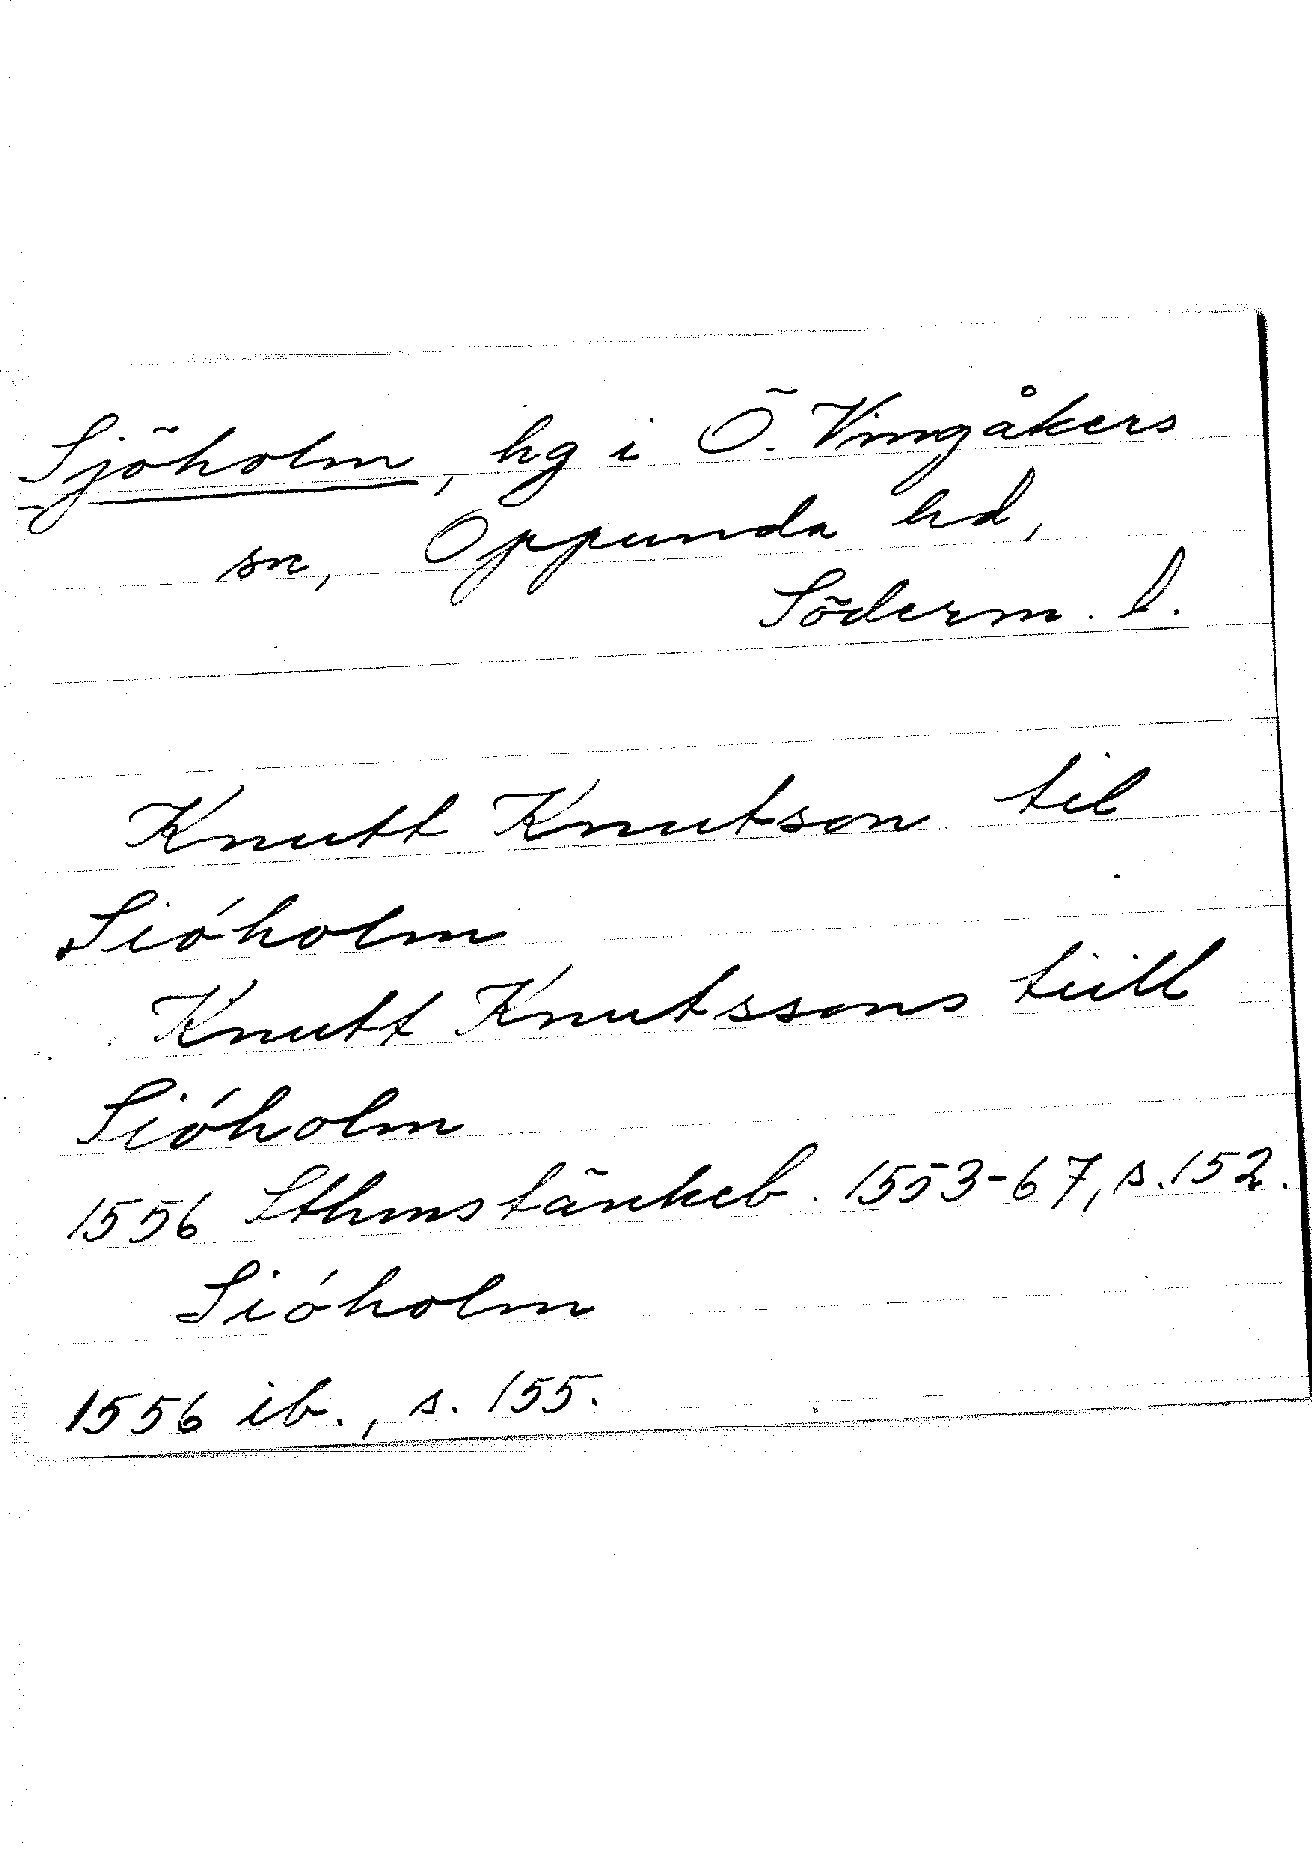 Sjöholm, hg i Ö. Vingåkers
sn, Oppunda hd,
Söderm. l.
Knutt Knutson til
Sióholm
Knutt Knutssons tiill
Sióholm
1556 Sthms tänkeb. 1553-67, s. 152.
Sióholm
1556 ib., s. 155.